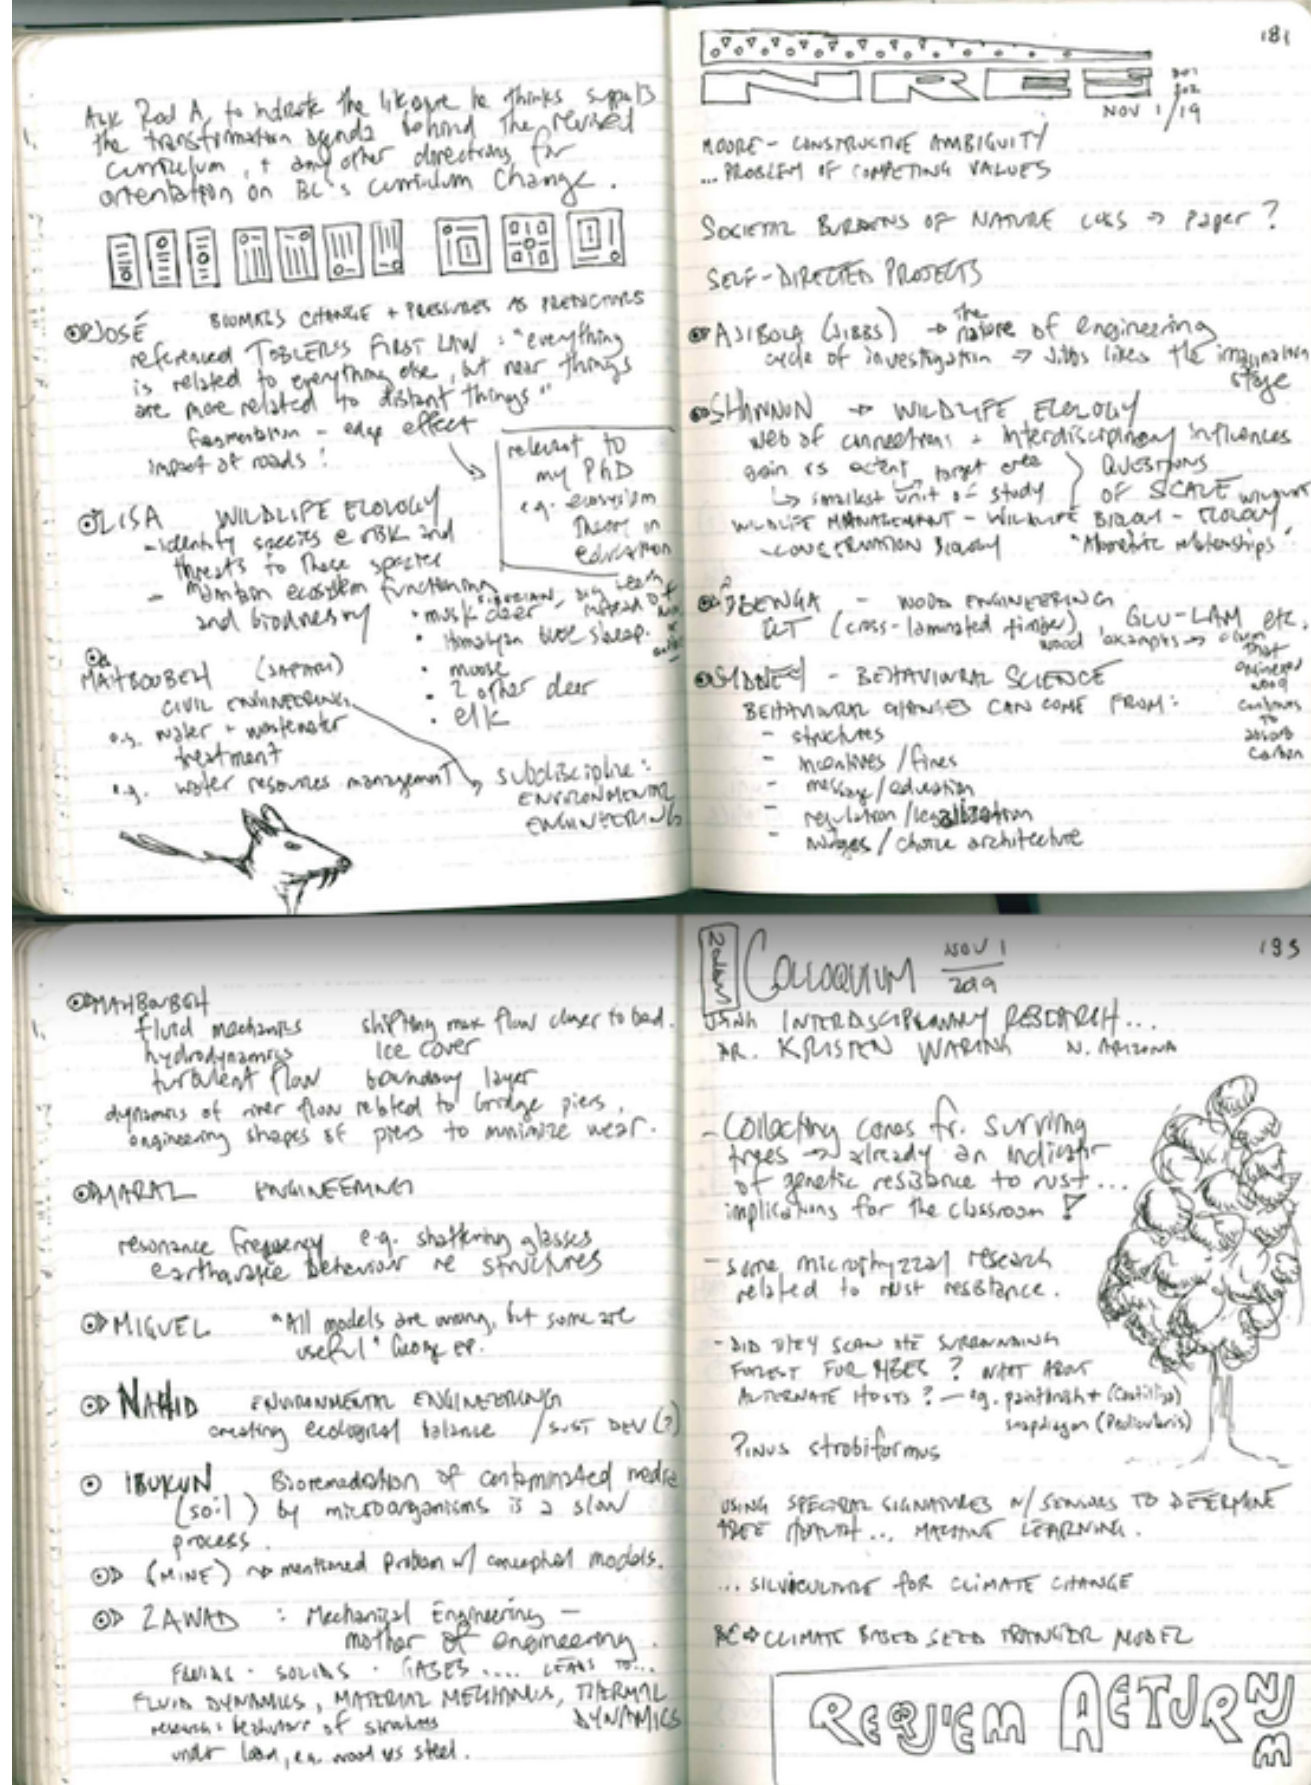 Ask Rod A. to indicate the literature he thinks supports
the transformation agenda behind the revised
curriculum, + any other directions for
orientation on BC's curriculum change.
JOSÉ BIOMASS CHANGE + PRESSURES AS PREDICTORS
referenced TOBLER'S FIRST LAW: "everything
is related to everything else, but near things
are more related to distant things"
fragmentation - edge effect
impact of roads!
relevant to
my PhD
e.g. ecosystem
theory in
education
LISA WILDLIFE ECOLOGY
- identify species @ and
threats to these species
- maintain ecosystem functioning
and biodiversity
• musk deer - SIBERIAN, big teeth
instead of
• Himalayan blue sheep.
• moose
• 2 other deer
• elk
MAHBOUBEH (SAFARI)
CIVIL ENGINEERING
e.g. water + wastewater
treatment
e.g. water resources management
subdiscipline:
ENVIRONMENTAL
ENGINEERING
181
NRES 801
802
NOV 1/19
MOORE - CONSTRUCTIVE AMBIGUITY
... PROBLEM OF COMPETING VALUES
SOCIETAL BURDENS OF NATURE LOSS → paper?
SELF-DIRECTED PROJECTS
AJIBOLA (JIBBS) → the nature of engineering
cycle of investigation → Jibbs likes the imagination
stage
SHANNON → WILDLIFE ECOLOGY
web of connections + interdisciplinary influences
grain vs extent, target area
↳ smallest unit of study
QUESTIONS
OF SCALE
WILDLIFE MANAGEMENT - WILDLIFE BIOLOGY - ECOLOGY
- CONSERVATION BIOLOGY relationships"
GBENGA - WOOD ENGINEERING
CLT (cross-laminated timber), GLU-LAM etc.
wood examples → claim
that
engineered
wood
continues
to
absorb
carbon
SIDNEY - BEHAVIOURAL SCIENCE
BEHAVIOURAL CHANGES CAN COME FROM:
- structures
- incentives / fines
- message / education
- regulation / legalization
- nudges / choice architecture
MAHBOUBEH
fluid mechanics shifting max flow closer to bed.
hydrodynamics ice cover
turbulent flow boundary layer
dynamics of river flow related to bridge piers,
engineering shapes of piers to minimize wear.
MARAL ENGINEERING
resonance frequency e.g. shattering glasses
earthquake behaviour re structures
MIGUEL "All models are wrong, but some are
useful" George
NAHID ENVIRONMENTAL ENGINEERING
creating ecological balance / SUST DEV (?)
IBUKUN Bioremediation of contaminated media
(soil) by microorganisms is a slow
process.
(MINE) → mentioned problem w/ conceptual models.
ZAWAD : Mechanical Engineering —
mother of engineering.
FLUIDS · SOLIDS · GASES .... LEADS TO...
FLUID DYNAMICS, MATERIAL MECHANICS, THERMAL
DYNAMICS
research: behaviour of structures
under load, e.g. wood vs steel.
183
COLLOQUIUM NOV 1
2019
USING INTERDISCIPLINARY RESEARCH...
DR. KRISTEN WARING N. ARIZONA
- Collecting cones fr. surviving
trees → already an indicator
of genetic resistance to rust...
implications for the classroom!
- some microrhyzzal research
related to rust resistance.
- DID THEY SCAN THE SURROUNDING
FOREST FOR RIBES? WHAT ABOUT
ALTERNATE HOSTS? — eg. paintbrush + (Castilleja)
snapdragon (Pedicularis)
PINUS strobiformus
USING SPECTRAL SIGNATURES W/ SENSORS TO DETERMINE
TREE HEALTH... MACHINE LEARNING.
... SILVICULTURE FOR CLIMATE CHANGE
BC → CLIMATE BASED SEED TRANSFER MODEL
REQUIEM AETURNUM